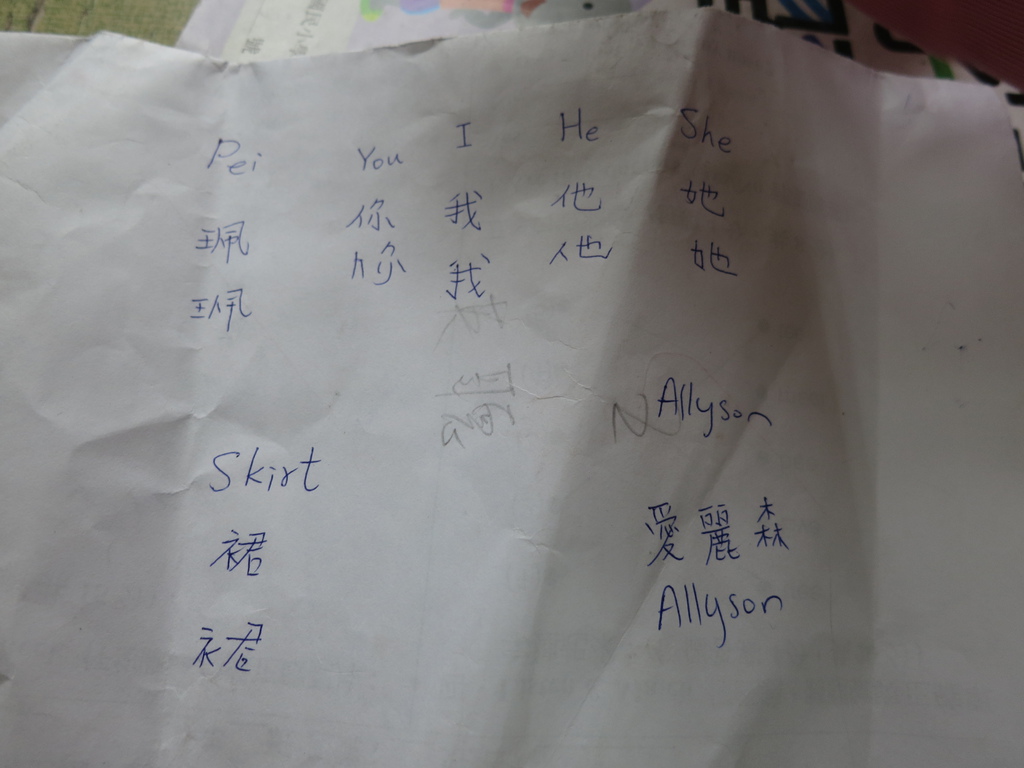 Pei You I He She
珮 你 我 他 她
珮 你 我 他 她
Allyson
Skirt
愛麗森
裙
Allyson
裙